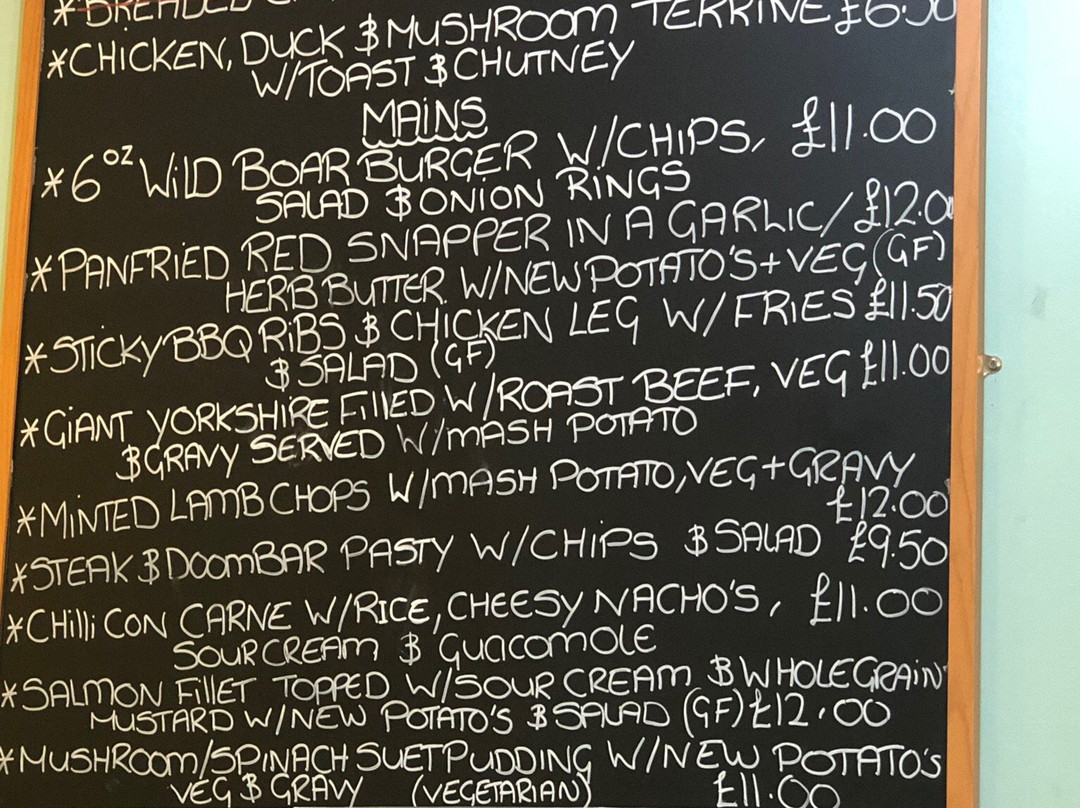 * BREADED
*CHICKEN, DUCK & MUSHROOM TERRINE £6.50
W/TOAST & CHUTNEY
MAINS
*6oz WILD BOAR BURGER W/CHIPS, £11.00
SALAD & ONION RINGS
*PANFRIED RED SNAPPER IN A GARLIC/ £12.00
HERB BUTTER W/NEW POTATO'S + VEG (GF)
*STICKY BBQ RIBS & CHICKEN LEG W/ FRIES £11.50
& SALAD (GF)
*GIANT YORKSHIRE FILLED W/ROAST BEEF, VEG £11.00
& GRAVY SERVED W/MASH POTATO
*MINTED LAMB CHOPS W/MASH POTATO, VEG + GRAVY
£12.00
*STEAK & DOOMBAR PASTY W/CHIPS & SALAD £9.50
*CHILLI CON CARNE W/RICE, CHEESY NACHO'S, £11.00
SOUR CREAM & GUACOMOLE
*SALMON FILLET TOPPED W/SOUR CREAM & WHOLEGRAIN
MUSTARD W/NEW POTATO'S & SALAD (GF) £12.00
*MUSHROOM/SPINACH SUET PUDDING W/NEW POTATO'S
VEG & GRAVY (VEGETARIAN) £11.00